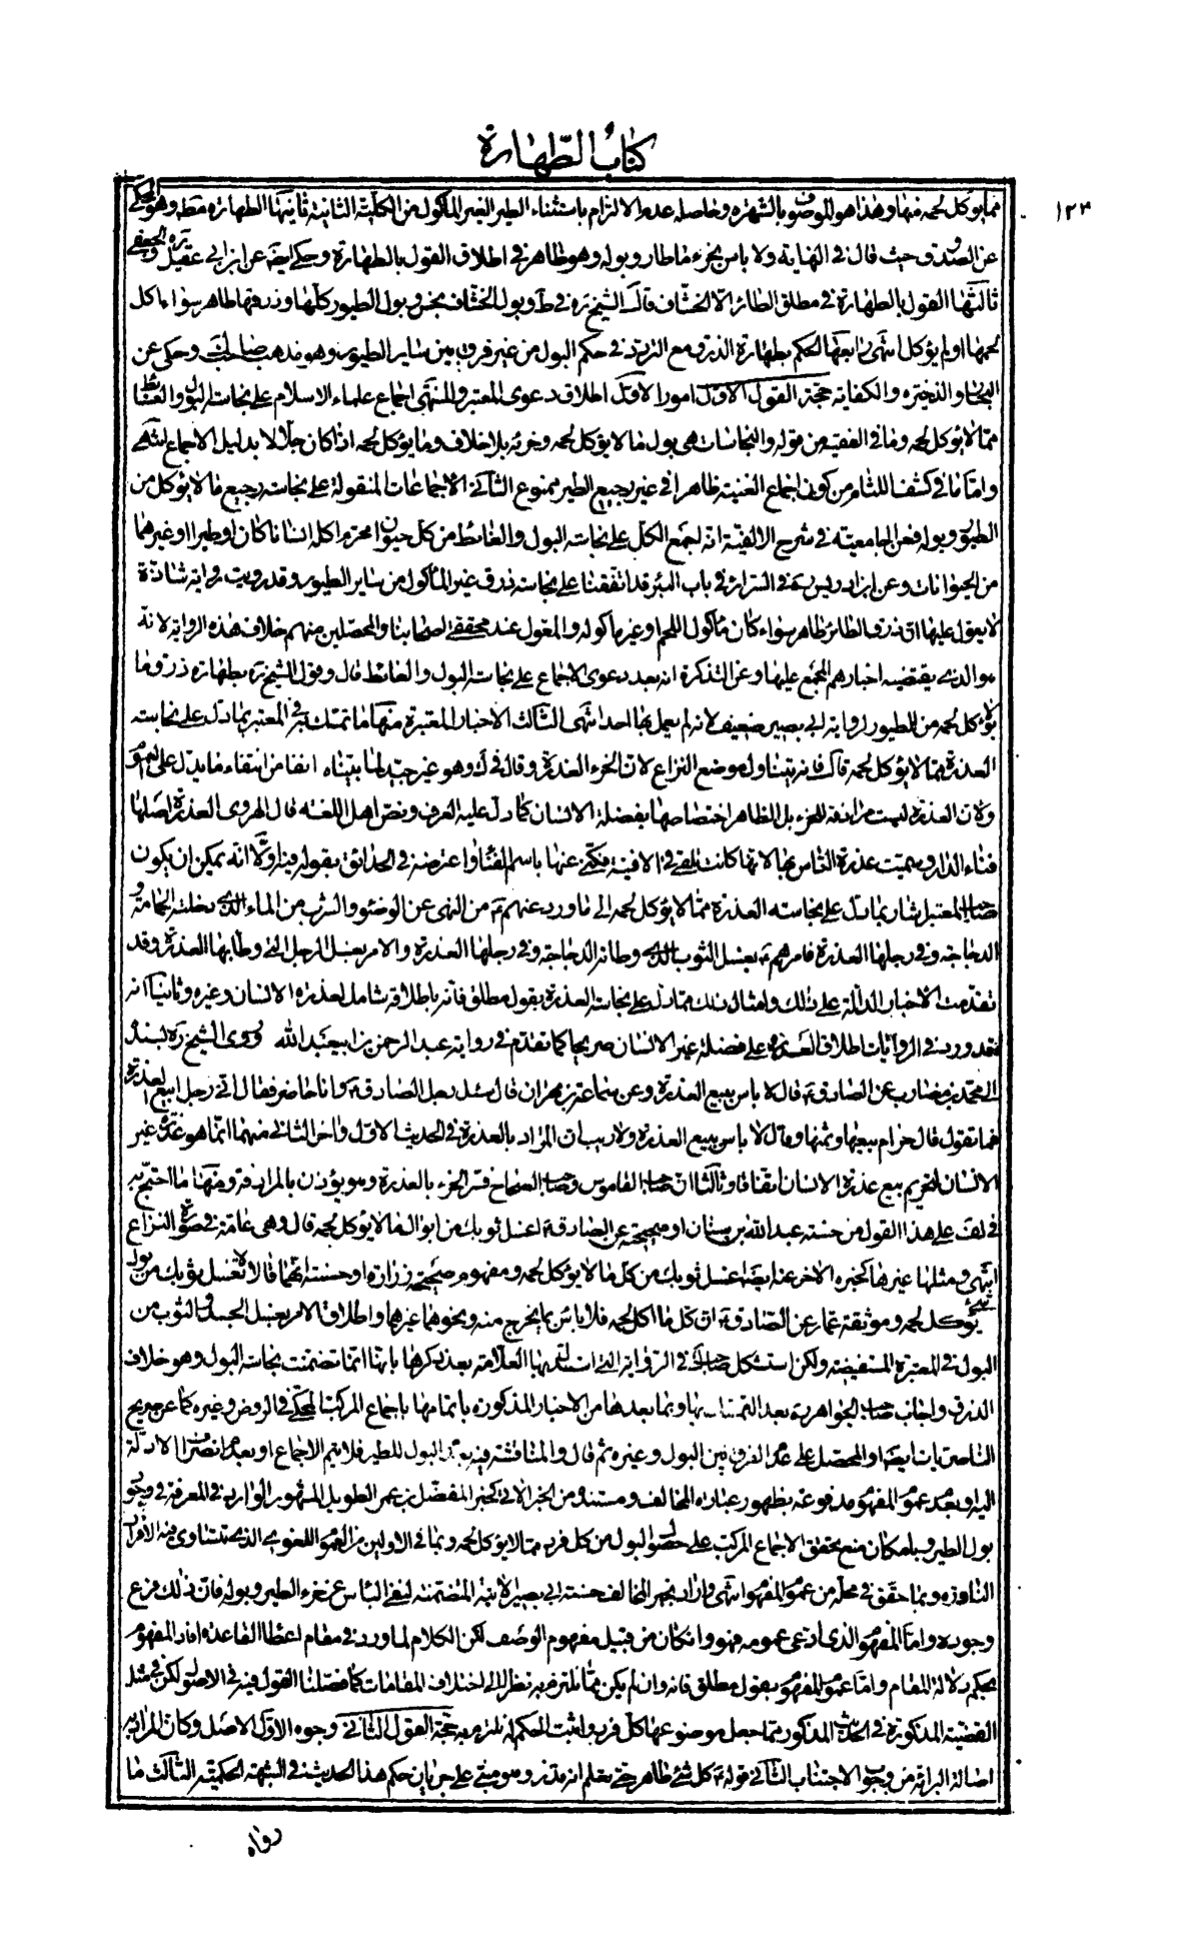 كتاب الطهارة
١٢٣
مما يؤكل لحمه منها وهذا هو الموصوف بالشهرة وحاصله عدم الالتزام باستثناء الطير الغير المأكول من الكلية الثانية ثانيها الطهارة مطلقا وهو المحكي
عن الصدوق حيث قال في الهداية ولا باس بخرء ما طار وبوله وهو ظاهر في اطلاق القول بالطهارة وحكى ايضا عن ابن ابي عقيل والجعفي
ثالثها القول بالطهارة في مطلق الطائر الا الخشاف قال الشيخ ره في ط وبول الخشاف نجس وبول الطيور كلها وذرقها طاهر سواء اكل
لحمها او لم يؤكل انتهى رابعها الحكم بطهارة الذرق مع التردد في حكم البول من غير فرق بين ساير الطيور وهو مذهب صاحب وحكى عن
البحار والذخيرة والكفاية حجة القول الاول امور الاول اطلاق دعوى المعتبر والمنتهى اجماع علماء الاسلام على نجاسة البول والغائط
مما لا يؤكل لحمه وما في الغنية من قوله والنجاسات هي بول ما لا يؤكل لحمه وخرئه بلا خلاف وما يؤكل لحمه اذا كان جلالا بدليل الاجماع انتهى
واما ما في كشف اللثام من كون اجماع الغنية ظاهرا في غير رجيع الطير ممنوع الثاني الاجماعات المنقولة على نجاسة رجيع ما لا يؤكل من
الطير وبوله فعن الجامعية في شرح الالفية انه اجمع الكل على نجاسة البول والغائط من كل حيوان محرم اكله انسانا كان او طيرا او غيرهما
من الحيوانات وعن ابن ادريس ره في السرائر في باب البئر قد اتفقنا على نجاسة ذرق غير المأكول من ساير الطيور وقد رويت رواية شاذة
لا يعول عليها ان ذرق الطائر طاهر سواء كان مأكول اللحم او غير مأكوله والمعول عند محققي اصحابنا والمحصلين منهم خلاف هذه الرواية لانه
هو الذي يقتضيه اخبارهم المجمع عليها وعن التذكرة انه بعد دعوى الاجماع على نجاسة البول والغائط قال وقول الشيخ ره بطهارة ذرق ما
لا يؤكل لحمه من الطيور لرواية ابي بصير ضعيف لانه لم يعمل بها احد انتهى الثالث الاخبار المعتبرة منها ما تمسك في المعتبر بما دل على نجاسة
العذرة مما لا يؤكل لحمه قال فانه يتناول موضع النزاع لان الخرء العذرة وقال في ك وهو غير جيد لما بيناه انفا من انتفاء ما يدل على العموم
ولان العذرة ليست مرادفة للخرء بل الظاهر اختصاصها بفضلة الانسان كما دل عليه العرف ونص اهل اللغة قال الهروي العذرة اصلها
فناء الدار وسميت عذرة الناس بها لانها كانت تلقى في الافنية فكنى عنها باسم الفناء واعترضه في الحدائق بقوله فيه اولا انه يمكن ان يكون
صاحب المعتبر اشار بما دل على نجاسة العذرة مما لا يؤكل لحمه الى ما ورد عنهم ع من النهي عن الوضوء والشرب من الماء الذي دخلته الحمامة و
الدجاجة وفي رجلها العذرة فامرهم ع بغسل الثوب الذي وطأته الدجاجة وفي رجلها العذرة والامر بغسل الرجل التي وطأ بها العذرة وقد
تقدمت الاخبار الدالة على ذلك وامثال ذلك مما دل على نجاسة العذرة بقول مطلق فانه باطلاقه شامل لعذرة الانسان وغيره وثانيا انه
قد ورد في الروايات اطلاق العذرة على فضلة غير الانسان صريحا كما تقدم في رواية عبد الرحمن بن ابي عبد الله وروى الشيخ ره بسنده
الى محمد بن مضارب عن الصادق ع قال لا باس ببيع العذرة وعن سماعة بن مهران قال سئل رجل الصادق ع وانا حاضر فقال اني رجل ابيع العذرة
فما تقول قال حرام بيعها وثمنها وقال لا باس ببيع العذرة ولا ريب ان المراد بالعذرة في الحديث الاول واخر الثاني منهما انما هو عذرة غير
الانسان لتحريم بيع عذرة الانسان اتفاقا وثالثا ان صاحب القاموس وصاحب الصحاح فسرا الخرء بالعذرة وهو يؤذن بالمرادفة ومنها ما احتج به
في لف على هذا القول من حسنة عبد الله بن سنان او صحيحته عن الصادق ع اغسل ثوبك من ابوال ما لا يؤكل لحمه قال وهي عامة في صورة النزاع
انتهى ومثلها غيرها كخبره الاخر عنه ايضا اغسل ثوبك من كل ما لا يؤكل لحمه ومفهوم صحيحة زرارة او حسنته انهما قالا لا تغسل ثوبك من بول
شيء يؤكل لحمه وموثقة عمار عن الصادق ع ان كل ما اكل لحمه فلا باس بما يخرج منه ونحوهما غيرهما واطلاق الامر بغسل الجسد والثوب من
البول في المعتبرة المستفيضة ولكن استشكل صاحب ك في الرواية التي استدل بها العلامة بعد ذكرها بانها انما تضمنت نجاسة البول وهو خلاف
الذرق واجاب صاحب الجواهر ره بعد التمسك بها وبما بعدها من الاخبار المذكورة باتمامها باجماع المركب المحكي في الروض وغيره كما عن صريح
الناصريات ايضا او المحصل على عدم الفرق بين البول وغيره ثم قال والمناقشة فيه بعدم البول للطير فلا يتم الاجماع او بعدم انصراف الادلة
اليه او بعدم عموم المفهوم مدفوعة بظهور عبارة المخالف ومستنده من الخبر الاتي كخبر المفضل بن عمر الطويل المشهور الوارد في المعرفة في وجود
بول الطير وبامكان منع تحقق الاجماع المركب على خصوص البول من كل فرد مما لا يؤكل لحمه وبما في الاولين من العموم اللغوي الذي تتساوى فيه الافراد
النادرة وبما حقق في محله من عموم المفهوم انتهى واراد بخبر المخالف حسنة ابي بصير الاتية المتضمنة لنفي الباس عن خرء الطير وبوله فان ذلك فرع
وجوده واما المفهوم الذي ادعى عمومه فهو وان كان من قبيل مفهوم الوصف لكن الكلام لما ورد في مقام اعطاء القاعدة افاد المفهوم
بحكم دلالة المقام واما عموم المفهوم بقول مطلق فانه وان لم يكن مما نلتزم به نظرا الى اختلاف المقامات كما فصلنا القول فيه في الاصول لكن في مثل
القضية المذكورة في الحديث المذكور مما جعل موضوعها كل فرد واثبت الحكم له نلتزم به حجة القول الثاني وجوه الاول الاصل وكان المراد به
اصالة البرائة من وجوب الاجتناب الثاني قوله ع كل شيء طاهر حتى تعلم انه قذر وهو مبني على جريان حكم هذا الحديث في الشبهة الحكمية الثالث ما
رواه